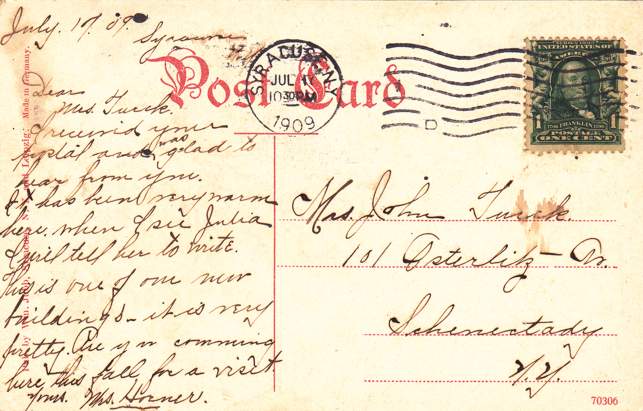 July. 17. 09. Syracuse
Dear
Mrs. Turck.
I received your
postal and was glad to
hear from you.
It has been very warm
here. when I see Julia
I will tell her to write.
this is one of our new
buildings - it is very
pretty. Are you comming
here this fall for a visit
Yours. Mrs. Horner.
Post Card
SYRACUSE, N.Y.
JUL
1030PM
1909
UNITED STATES OF AMERICA
FRANKLIN
POSTAGE
ONE CENT
Mrs. John Turck
101 Osterlitz
Schenectady
N.Y.
70306
Leipzig Made in Germany.